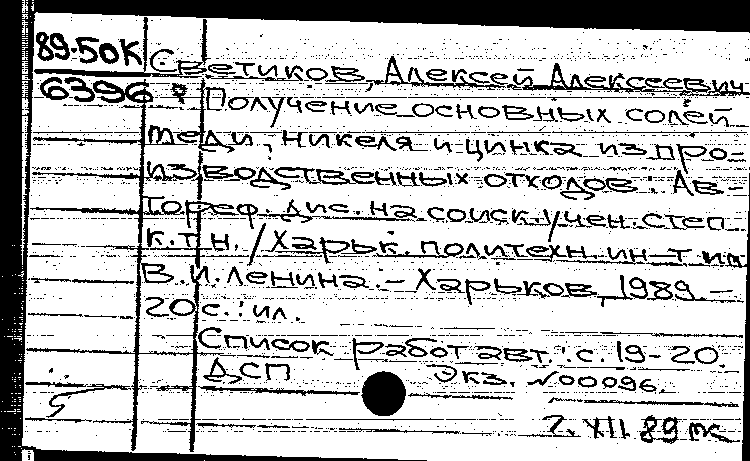 89-50К Светиков, Алексей Алексеевич
6396 Получение основных солей
меди, никеля и цинка из про-
изводственных отходов: Ав-
тореф. дис. на соиск. учен. степ.
к.т.н. / Харьк. политехн. ин-т им
В.И.Ленина. - Харьков, 1989. -
20 с.: ил.
Список работ авт.: с. 19-20.
ДСП Экз. №00096.
5
7. XII. 89